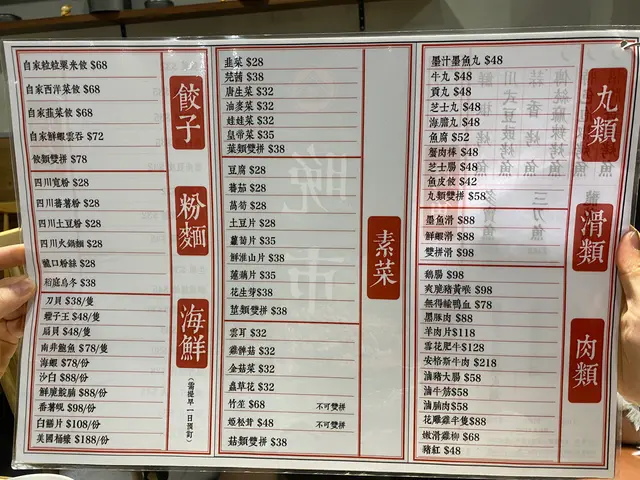 餃子
自家粒粒粟米餃 $68
自家西洋菜餃 $68
自家韮菜餃 $68
自家鮮蝦雲吞 $72
餃類雙拼 $78
粉麵
四川寬粉 $28
四川番薯粉 $28
四川土豆粉 $28
四川火鍋麵 $28
龍口粉絲 $28
稻庭烏冬 $38
海鮮
(需提早一日預訂)
刀貝 $38/隻
蟶子王 $48/隻
扇貝 $48/隻
南非鮑魚 $78/隻
海蝦 $78/份
沙白 $88/份
鮮脆脘腩 $88/份
番薯呢 $98/份
白鱔片 $108/份
美國桶蠔 $188/份
素菜
韭菜 $28
茼蒿 $38
唐生菜 $32
油麥菜 $32
娃娃菜 $32
皇帝菜 $35
葉類雙拼 $38
豆腐 $28
蕃茄 $28
萵筍 $28
土豆片 $28
蘿蔔片 $35
鮮淮山片 $38
蓮藕片 $35
花生芽$38
莖類雙拼 $38
雲耳 $32
雞髀菇 $32
金菇菜 $32
蟲草花 $32
竹笙 $68 不可雙拼
姬松茸 $48 不可雙拼
菇類雙拼 $38
丸類
墨汁墨魚丸 $48
牛丸 $48
貢丸 $48
芝士丸 $48
海膽丸 $48
魚腐 $52
蟹肉棒 $48
芝士腸 $48
魚皮餃 $42
丸類雙拼 $58
滑類
墨魚滑 $88
鮮蝦滑 $88
雙拼滑 $98
肉類
鵝腸 $98
爽脆豬黃喉 $98
無得輸鴨血 $78
黑豚肉 $88
羊肉片$118
雪花肥牛$128
安格斯牛肉 $218
滷豬大腸 $58
滷牛筋$58
滷腩肉$58
花雕雞半隻$88
嫩滑雞柳 $68
豬紅 $48